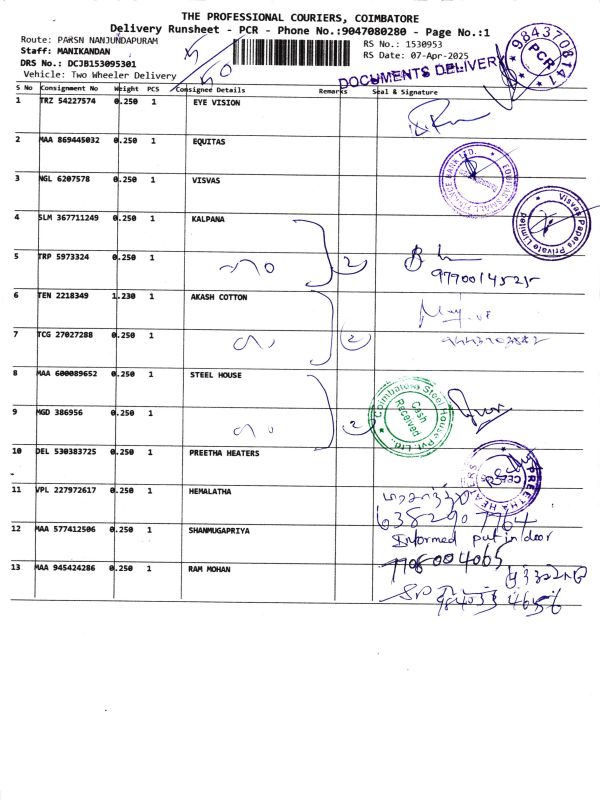 THE PROFESSIONAL COURIERS, COIMBATORE
Delivery Runsheet - PCR - Phone No.:9047080280 - Page No.:1
Route: PARSN NANJUNDAPURAM
Staff: MANIKANDAN
DRS No.: DCJB153095301
Vehicle: Two Wheeler Delivery
RS No.: 1530953
RS Date: 07-Apr-2025
DOCUMENTS DELIVERY
9843708141
PCR
S No Consignment No Weight PCS Consignee Details Remarks Seal & Signature
1 TRZ 54227574 0.250 1 EYE VISION
2 MAA 869445032 0.250 1 EQUITAS
EQUITAS SMALL FINANCE BANK LTD.
3 NGL 6207578 0.250 1 VISVAS
Visvas Papers Private Limited
4 SLM 367711249 0.250 1 KALPANA
5 TRP 5973324 0.250 1
2
9790014525
6 TEN 2218349 1.230 1 AKASH COTTON
7 TCG 27027288 0.250 1
2
8 MAA 600089652 0.250 1 STEEL HOUSE
9 MGD 386956 0.250 1
2
Coimbatore Steel House Pvt. Ltd.
Cash Received
10 DEL 530383725 0.250 1 PREETHA HEATERS
PREETHA HEATERS
11 VPL 227972617 0.250 1 HEMALATHA
6382907764
12 MAA 577412506 0.250 1 SHANMUGAPRIYA
Informed put in door
7708004065
13 MAA 945424286 0.250 1 RAM MOHAN
984033 4656